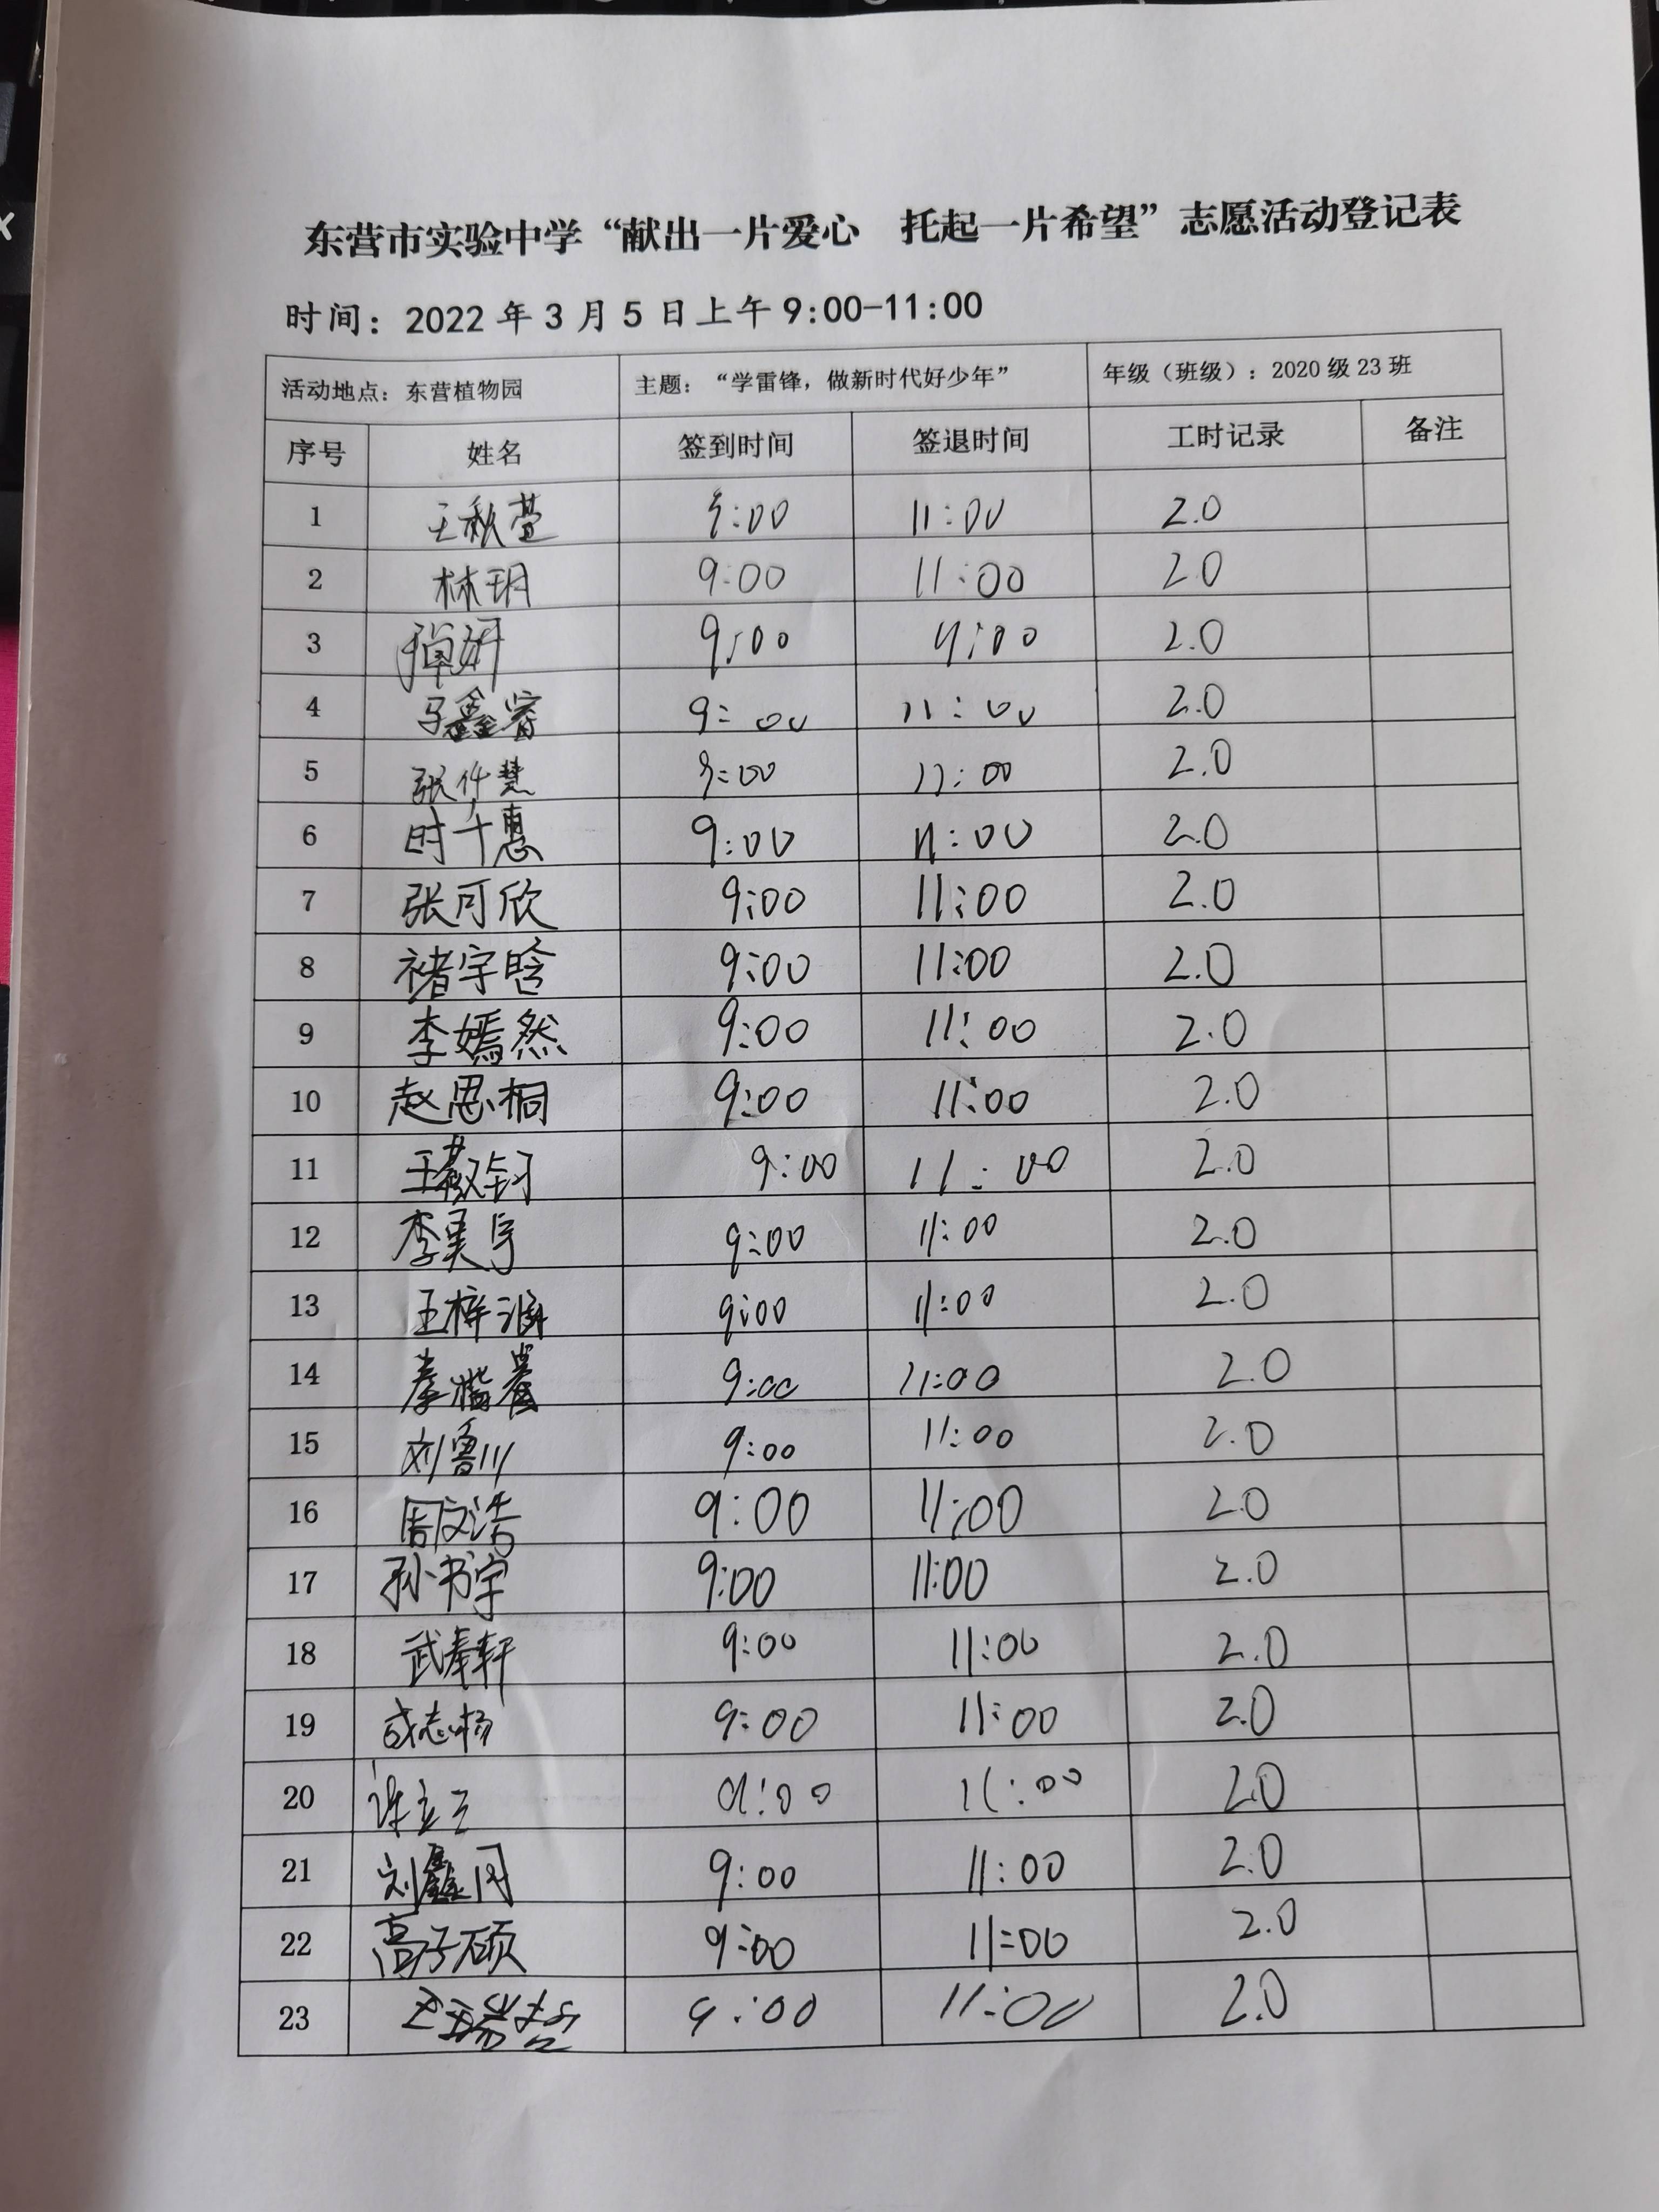 东营市实验中学“献出一片爱心 托起一片希望”志愿活动登记表
时间：2022年3月5日上午9:00-11:00
活动地点：东营植物园 主题：“学雷锋，做新时代好少年” 年级（班级）：2020级23班
序号 姓名 签到时间 签退时间 工时记录 备注
1 王秋萱 9:00 11:00 2.0
2 林玥 9:00 11:00 2.0
3 9:00 11:00 2.0
4 马鑫睿 9:00 11:00 2.0
5 9:00 11:00 2.0
6 时千惠 9:00 11:00 2.0
7 张可欣 9:00 11:00 2.0
8 褚宇晗 9:00 11:00 2.0
9 李嫣然 9:00 11:00 2.0
10 赵思桐 9:00 11:00 2.0
11 9:00 11:00 2.0
12 李昊宇 9:00 11:00 2.0
13 王梓涵 9:00 11:00 2.0
14 9:00 11:00 2.0
15 刘鲁川 9:00 11:00 2.0
16 周文浩 9:00 11:00 2.0
17 孙书宇 9:00 11:00 2.0
18 武奉轩 9:00 11:00 2.0
19 成志杨 9:00 11:00 2.0
20 9:00 11:00 2.0
21 刘鑫 9:00 11:00 2.0
22 高子硕 9:00 11:00 2.0
23 9:00 11:00 2.0